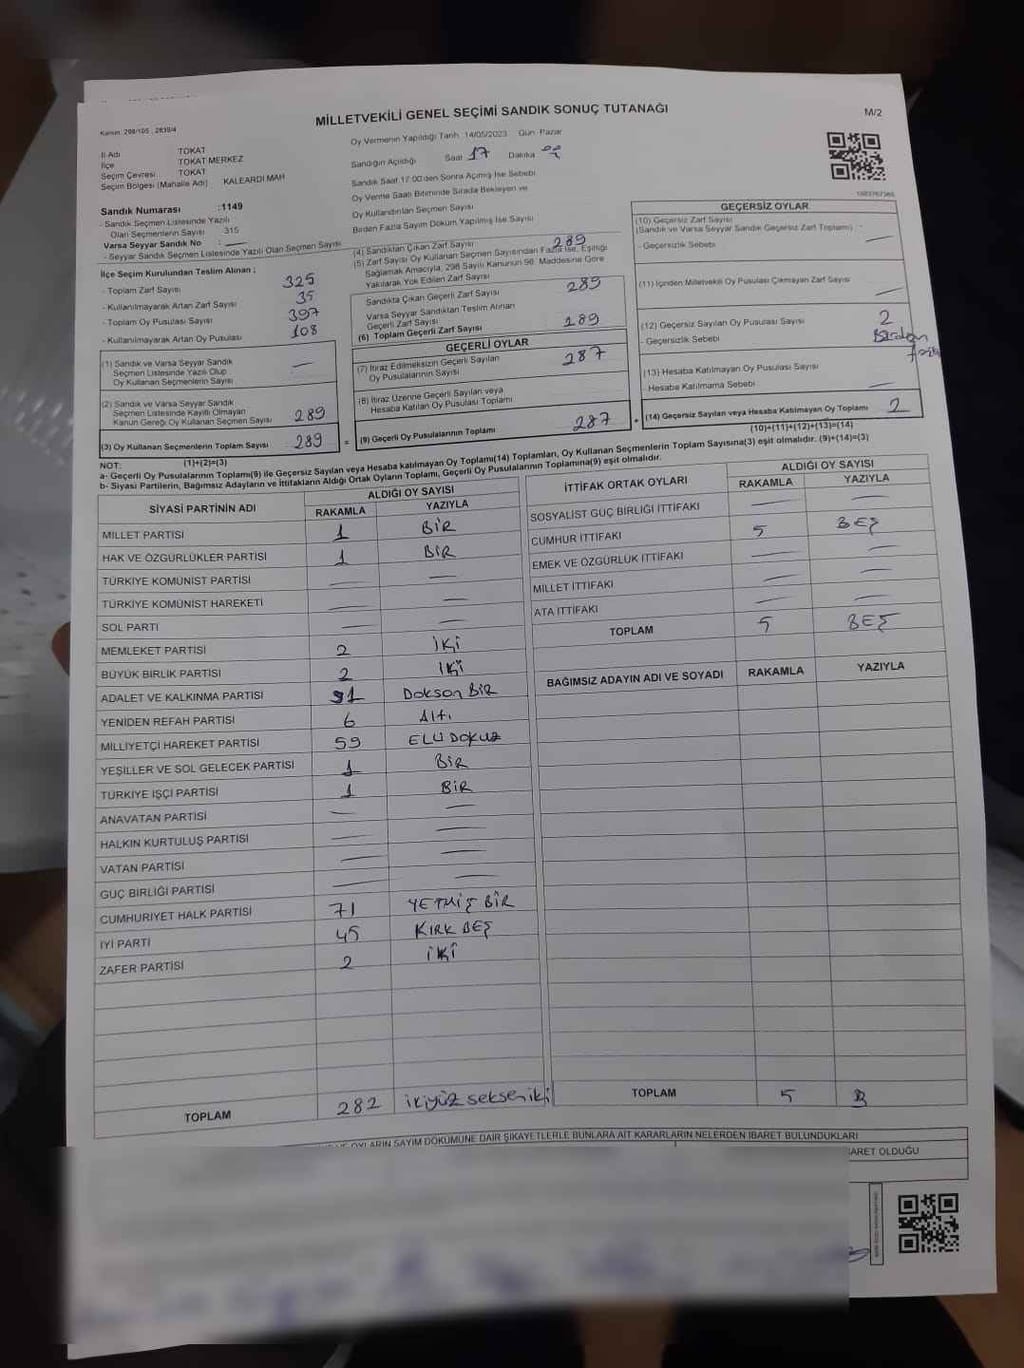 MİLLETVEKİLİ GENEL SEÇİMİ SANDIK SONUÇ TUTANAĞI
M/2
Kanun: 298/105 , 2839/4
İl Adı TOKAT
İlçe TOKAT MERKEZ
Seçim Çevresi TOKAT
Seçim Bölgesi (Mahalle Adı) KALEARDI MAH
Sandık Numarası :1149
- Sandık Seçmen Listesinde Yazılı
Olan Seçmenlerin Sayısı 315
Varsa Seyyar Sandık No : —
- Seyyar Sandık Seçmen Listesinde Yazılı Olan Seçmen Sayısı
İlçe Seçim Kurulundan Teslim Alınan ;
- Toplam Zarf Sayısı 325
- Kullanılmayarak Artan Zarf Sayısı 35
- Toplam Oy Pusulası Sayısı 397
- Kullanılmayarak Artan Oy Pusulası 108
(1) Sandık ve Varsa Seyyar Sandık
Seçmen Listesinde Yazılı Olup
Oy Kullanan Seçmenlerin Sayısı —
(2) Sandık ve Varsa Seyyar Sandık
Seçmen Listesinde Kayıtlı Olmayan
Kanun Gereği Oy Kullanan Seçmen Sayısı 289
(3) Oy Kullanan Seçmenlerin Toplam Sayısı 289 =
(1)+(2)=(3)
Oy Vermenin Yapıldığı Tarih :14/05/2023 Gün :Pazar
Sandığın Açıldığı Saat 17 Dakika
Sandık Saat 17:00'den Sonra Açılmış İse Sebebi
Oy Verme Saati Bitiminde Sırada Bekleyen ve
Oy Kullandırılan Seçmen Sayısı
Birden Fazla Sayım Döküm Yapılmış İse Sayısı
(4) Sandıktan Çıkan Zarf Sayısı 289
(5) Zarf Sayısı Oy Kullanan Seçmen Sayısından Fazla İse, Eşitliği
Sağlamak Amacıyla, 298 Sayılı Kanunun 98. Maddesine Göre
Yakılarak Yok Edilen Zarf Sayısı
Sandıkta Çıkan Geçerli Zarf Sayısı 289
Varsa Seyyar Sandıktan Teslim Alınan
Geçerli Zarf Sayısı
(6) Toplam Geçerli Zarf Sayısı 289
GEÇERLİ OYLAR
(7) İtiraz Edilmeksizin Geçerli Sayılan
Oy Pusulalarının Sayısı 287
(8) İtiraz Üzerine Geçerli Sayılan veya
Hesaba Katılan Oy Pusulası Toplamı
(9) Geçerli Oy Pusulalarının Toplamı 287 +
GEÇERSİZ OYLAR
(10) Geçersiz Zarf Sayısı
(Sandık ve Varsa Seyyar Sandık Geçersiz Zarf Toplamı) —
- Geçersizlik Sebebi
(11) İçinden Milletvekili Oy Pusulası Çıkmayan Zarf Sayısı —
(12) Geçersiz Sayılan Oy Pusulası Sayısı 2
- Geçersizlik Sebebi Birden fazla
(13) Hesaba Katılmayan Oy Pusulası Sayısı
Hesaba Katılmama Sebebi —
(14) Geçersiz Sayılan veya Hesaba Katılmayan Oy Toplamı 2
(10)+(11)+(12)+(13)=(14)
NOT:
a- Geçerli Oy Pusulalarının Toplamı(9) ile Geçersiz Sayılan veya Hesaba katılmayan Oy Toplamı(14) Toplamları, Oy Kullanan Seçmenlerin Toplam Sayısına(3) eşit olmalıdır. (9)+(14)=(3)
b- Siyasi Partilerin, Bağımsız Adayların ve İttifakların Aldığı Ortak Oyların Toplamı, Geçerli Oy Pusulalarının Toplamına(9) eşit olmalıdır.
SİYASİ PARTİNİN ADI ALDIĞI OY SAYISI
RAKAMLA YAZIYLA
MİLLET PARTİSİ 1 BİR
HAK VE ÖZGÜRLÜKLER PARTİSİ 1 BİR
TÜRKİYE KOMÜNİST PARTİSİ — —
TÜRKİYE KOMÜNİST HAREKETİ — —
SOL PARTİ — —
MEMLEKET PARTİSİ 2 İKİ
BÜYÜK BİRLİK PARTİSİ 2 İKİ
ADALET VE KALKINMA PARTİSİ 91 Doksan BİR
YENİDEN REFAH PARTİSİ 6 Altı
MİLLİYETÇİ HAREKET PARTİSİ 59 ELLİ DOKUZ
YEŞİLLER VE SOL GELECEK PARTİSİ 1 BİR
TÜRKİYE İŞÇİ PARTİSİ 1 BİR
ANAVATAN PARTİSİ — —
HALKIN KURTULUŞ PARTİSİ — —
VATAN PARTİSİ — —
GÜÇ BİRLİĞİ PARTİSİ — —
CUMHURİYET HALK PARTİSİ 71 YETMİŞ BİR
İYİ PARTİ 45 KIRK BEŞ
ZAFER PARTİSİ 2 İKİ
TOPLAM 282 ikiyüz seksen iki
İTTİFAK ORTAK OYLARI ALDIĞI OY SAYISI
RAKAMLA YAZIYLA
SOSYALİST GÜÇ BİRLİĞİ İTTİFAKI — —
CUMHUR İTTİFAKI 5 BEŞ
EMEK VE ÖZGÜRLÜK İTTİFAKI — —
MİLLET İTTİFAKI — —
ATA İTTİFAKI — —
TOPLAM 5 BEŞ
BAĞIMSIZ ADAYIN ADI VE SOYADI RAKAMLA YAZIYLA
TOPLAM 5 B
OYLARIN SAYIM DÖKÜMÜNE DAİR ŞİKAYETLERLE BUNLARA AİT KARARLARIN NELERDEN İBARET BULUNDUKLARI
İBARET OLDUĞU